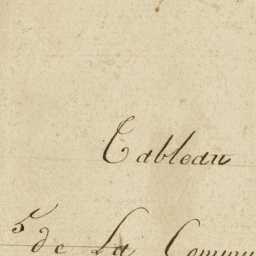 Tableau
5 de La Commu